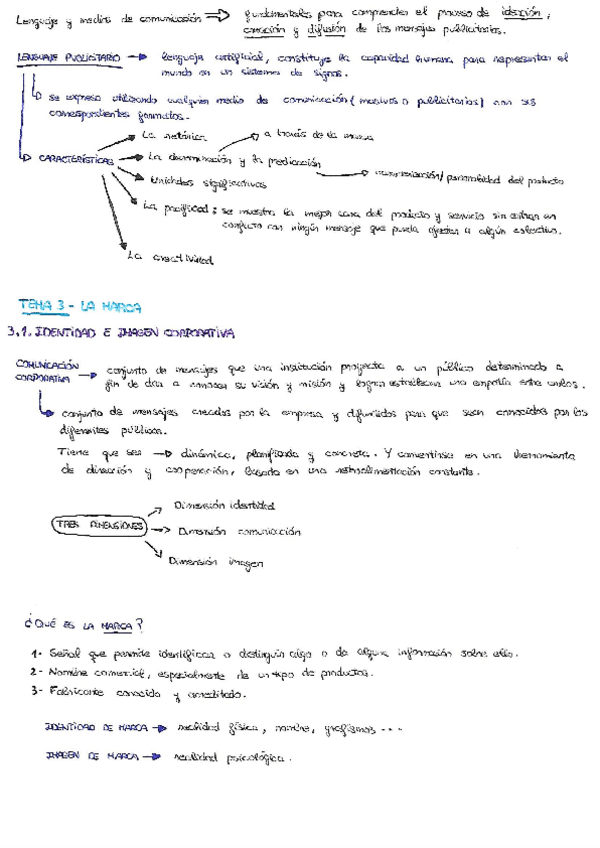 Lenguaje y medios de comunicación ⇒ fundamentales para comprender el proceso de ideación,
creación y difusión de los mensajes publicitarios.
LENGUAJE PUBLICITARIO → lenguaje artificial, constituye la capacidad humana para representar el
mundo en un sistema de signos.
↳ se expresa utilizando cualquier medio de comunicación (masivos o publicitarios) con sus
correspondientes formatos.
↳ CARACTERÍSTICAS
→ La retórica
→ La denominación y la predicación
→ a través de la marca
→ /personalidad del producto
→ Unidades significativas
→ La pacificud: se muestra la mejor cara del producto y servicio sin entrar en
conflicto con ningún mensaje que pueda ofender a algún colectivo.
→ La creatividad
TEMA 3 - LA MARCA
3.1. IDENTIDAD E IMAGEN CORPORATIVA
COMUNICACIÓN CORPORATIVA → conjunto de mensajes que una institución proyecta a un público determinado a
fin de dar a conocer su visión y misión y lograr establecer una empatía entre ambos.
↳ conjunto de mensajes creados por la empresa y difundidos para que sean conocidos por los
diferentes públicos.
Tiene que ser → dinámica, planificada y concreta. Y convertirse en una herramienta
de dirección y cooperación, basada en una retroalimentación constante.
TRES DIMENSIONES
→ Dimensión identidad
→ Dimensión comunicación
→ Dimensión imagen
¿QUÉ ES LA MARCA?
1- Señal que permite identificar o distinguir algo o da alguna información sobre ello.
2- Nombre comercial, especialmente de un tipo de productos.
3- Fabricante conocido y acreditado.
IDENTIDAD DE MARCA → realidad física, nombre, grafismos...
IMAGEN DE MARCA → realidad psicológica.